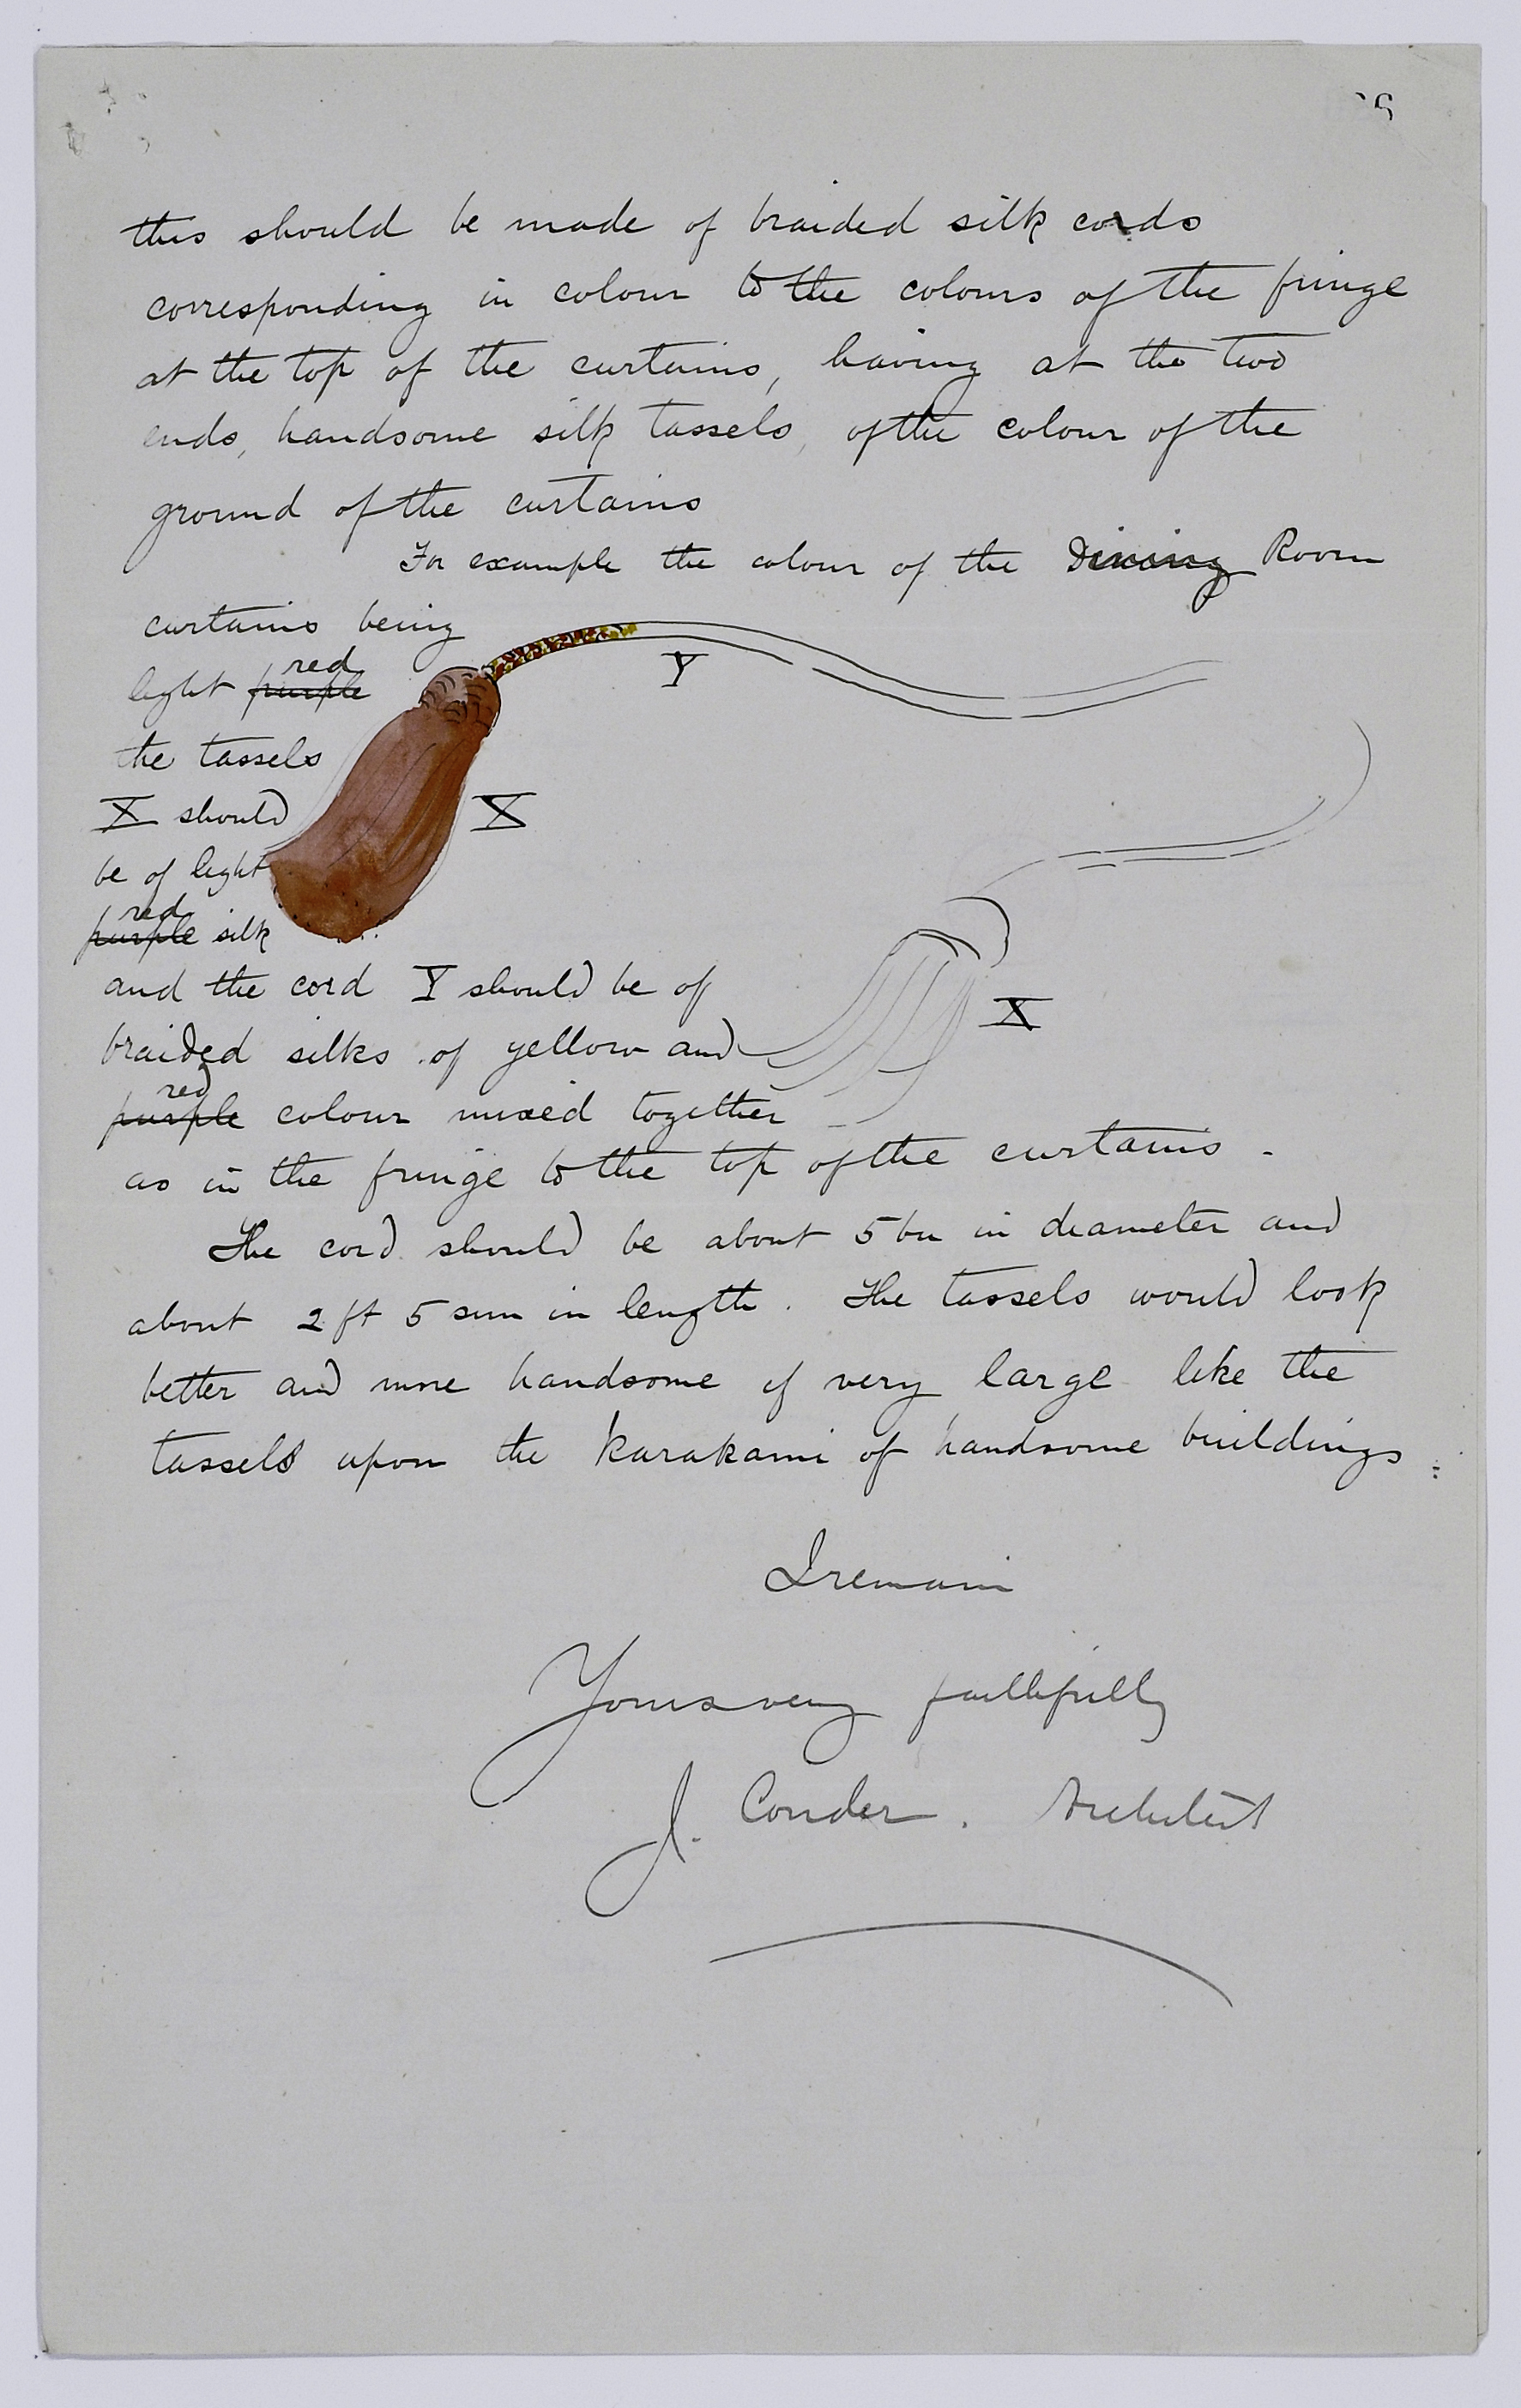 this should be made of braided silk cords
corresponding in colour to the colours of the fringe
at the top of the curtains, having at the two
ends, handsome silk tassels, of the colour of the
ground of the curtains
For example the colour of the Dining Room
curtains being
light purple red
the tassels
X should
be of light
purple red silk
and the cord Y should be of
braided silks of yellow and
purple red colour mixed together
as in the fringe to the top of the curtains.
The cord should be about 5 bu in diameter and
about 2 ft 5 sun in length. The tassels would look
better and more handsome if very large like the
tassels upon the Karakami of handsome buildings.
Y
X
X
I remain
Yours very faithfully
J. Conder. Architect